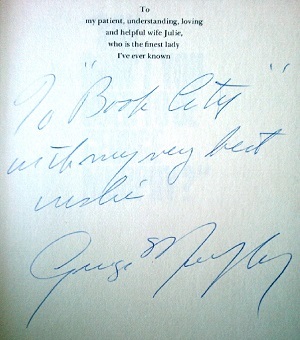 To
my patient, understanding, loving
and helpful wife Julie,
who is the finest lady
I've ever known
To "Book City"
with my very best
wishes
George Murphy